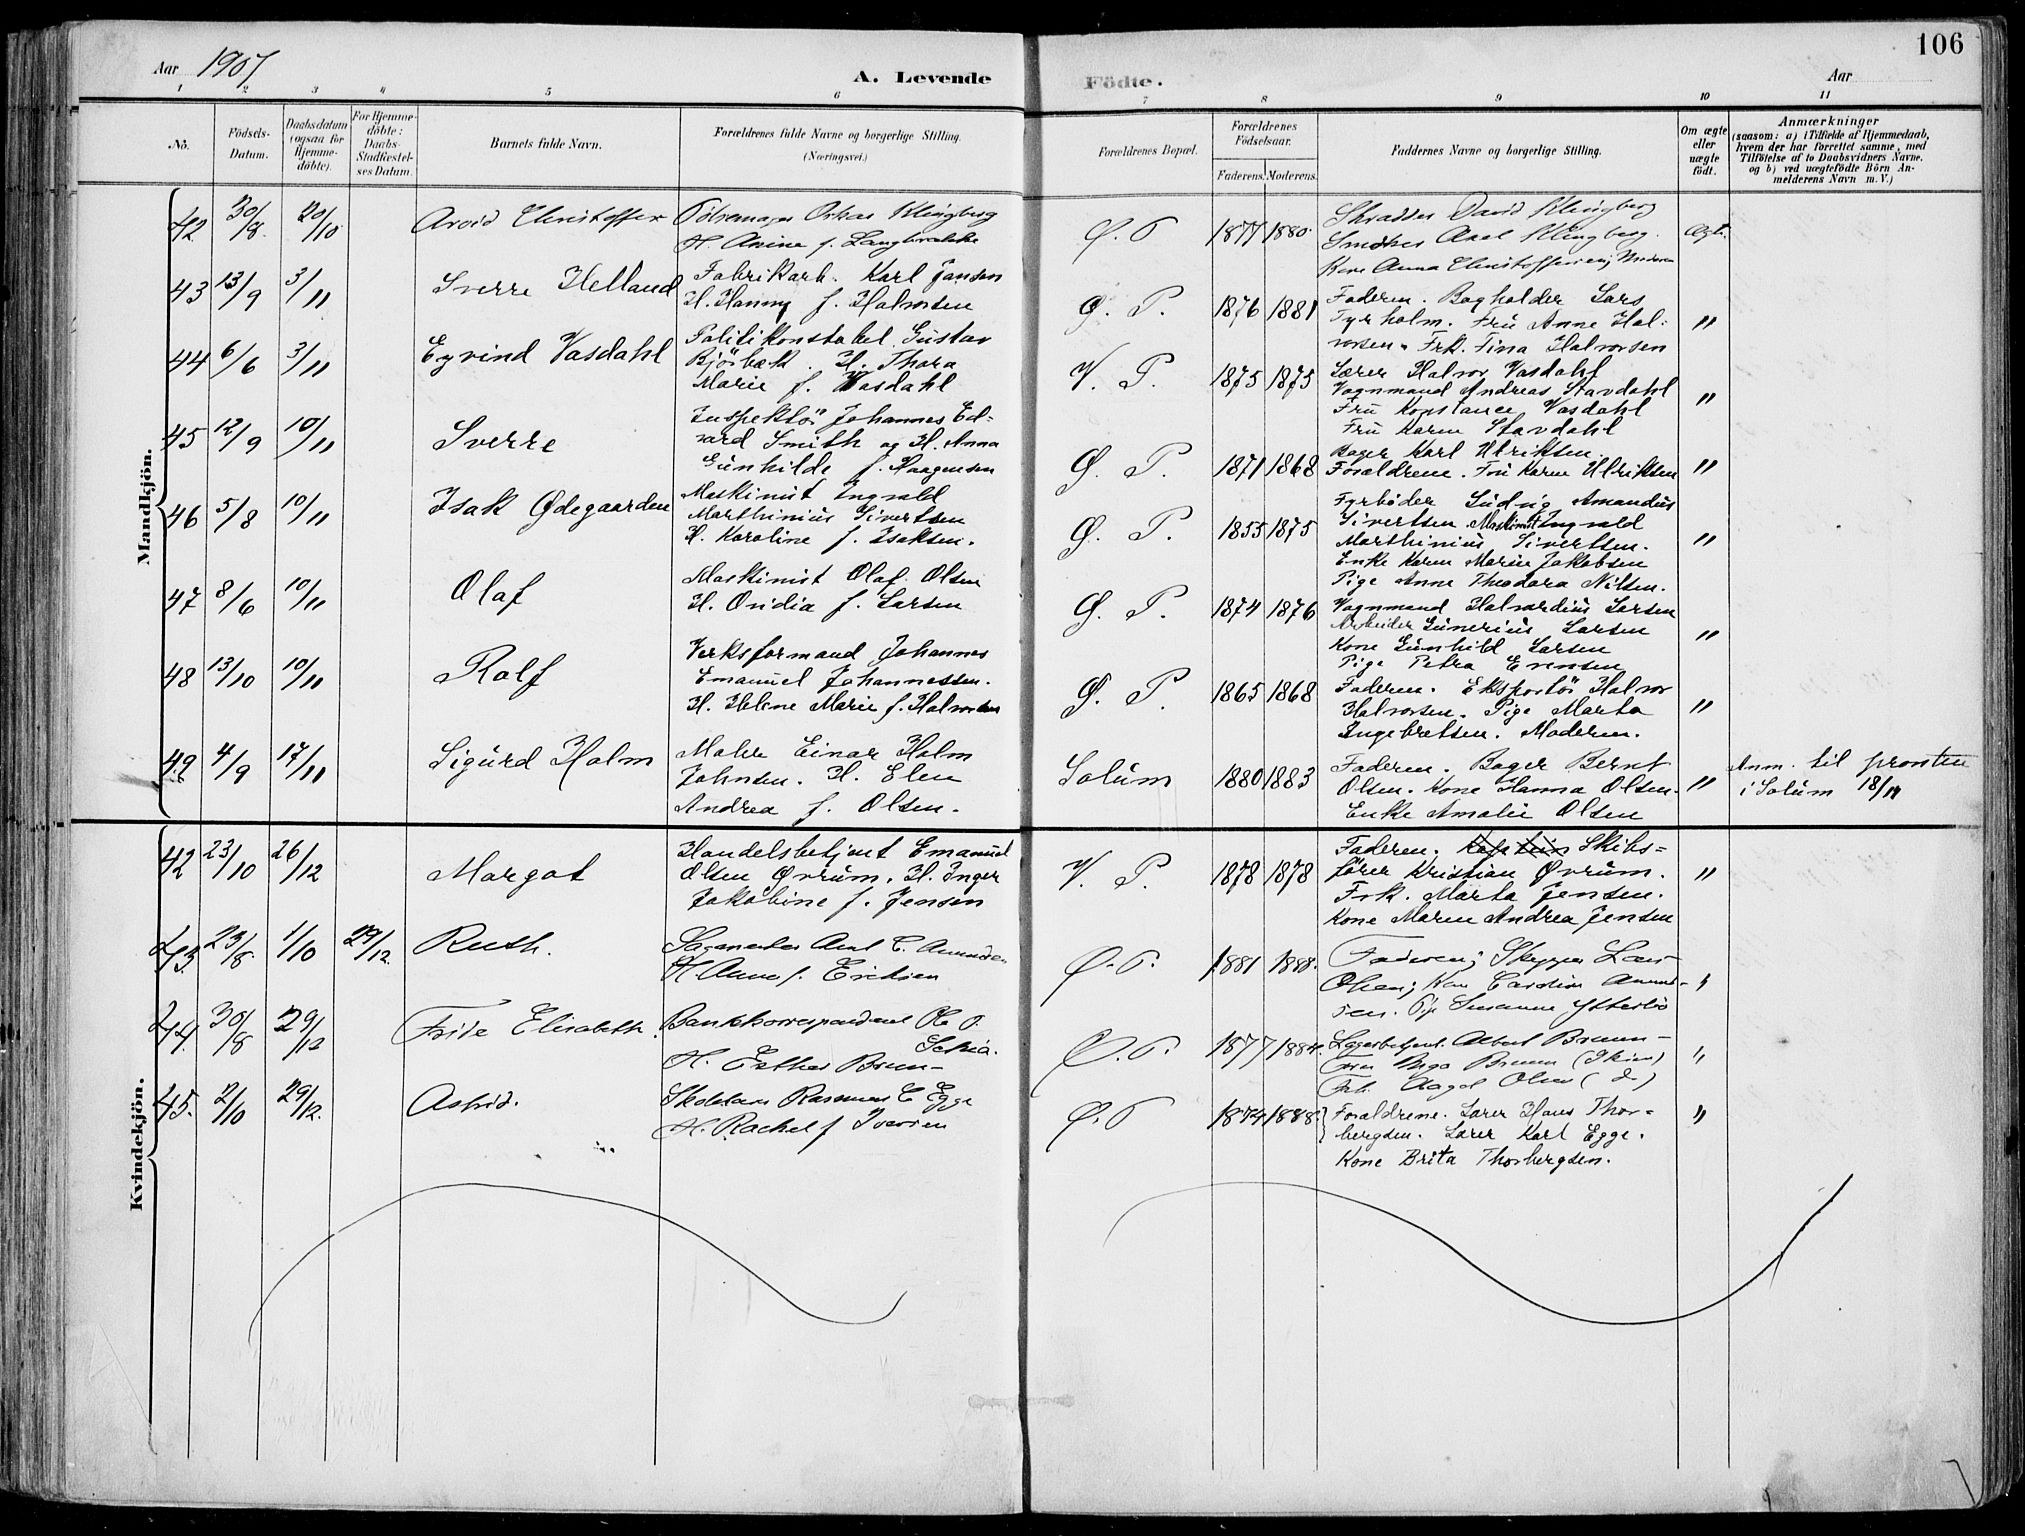 106
Aar 1907
A. Levende
Födte.
Aar
1 2 3 4 5 6 7 8 9 10 11
No.
Födsels-Datum.
Daabsdatum (ogsaa for Hjemme-döbte).
For Hjemme-döbte: Daabs-Stadfæstel-ses Datum.
Barnets fulde Navn.
Forældrenes fulde Navne og borgerlige Stilling.
(Næringsvei.)
Forældrenes Bopæl.
Forældrenes Födselsaar.
Faderens. Moderens.
Faddernes Navne og borgerlige Stilling.
Om ægte eller uægte født.
Anmærkninger
(saasom: a) i Tilfælde af Hjemmedaab,
hvem der har forrettet samme, med
Tilföielse af to Daabsvidners Navne.
og b) ved uægtefödte Börn An-
melderens Navn m. V.)
Mandkjön.
42 30/8 20/10 Arvid Christoffer
Oskar Klingberg
H. Anine f. Langbrække
Ø. P 1877 1880
Skrædder David Klingberg
Axel Klingberg.
Kone Anna
Ægte
43 13/9 3/11 Sverre Helland
Fabrikarb. Karl Jansen
H. Hanny f. Halvorsen
Ø. P. 1876 1881
Faderen. Bogholder Lars
Tyrholm. Fru Anne Hal-
vorsen. Frk. Tina Halvorsen
"
44 6/6 3/11 Eyvind Vasdahl
Politikonstabel Gustav
Bjørbæk. H. Thora
Marie f. Vasdahl
V. P. 1875 1875
Lærer Halvor Vasdahl
Vognmand Andreas Stavdahl
Fru Konstance Vasdahl
Fru Karen Stavdahl
"
45 12/9 10/11 Sverre
Inspektør Johannes Ed-
vard Smith og H. Anna
Gunhilde f. Haagensen
Ø. P. 1871 1868
Bager Karl Ulriksen.
Forældrene. Fru Karen Ulriksen
"
46 5/8 10/11 Isak Ødegaarden
Maskinist Ingvald
Marthinius Sivertsen
H. Karoline f. Isaksen.
Ø. P. 1855 1875
Fyrbøder Ludvig Amandus
Sivertsen. Maskinist Ingvald
Marthinius Sivertsen.
Enke Karen Marie Jakobsen
Pige Anne Theodora Nilsen.
"
47 8/6 10/11 Olaf
Maskinist Olaf Olsen
H. Ovidia f. Larsen
Ø. P. 1874 1876
Vognmand Halvardius Larsen
Arbeider Gunerius Larsen
Kone Gunhild Larsen
Pige Petra Evensen
"
48 13/10 10/11 Rolf
Verksformand Johannes
Emanuel Johannessen.
H. Helene Marie f. Halvorsen
Ø. P. 1865 1868
Faderen. Eksportør Halvor
Halvorsen. Pige Marta
Ingebretsen. Moderen.
"
49 4/9 17/11 Sigurd Holm
Maler Einar Holm
Johnsen. H. Elen
Andrea f. Olsen.
Solum 1880 1883
Faderen. Bager Bernt
Olsen. Kone Hanna Olsen.
Enke Amalie Olsen
"
Anm. til prosten
i Solum 18/11
Kvindekjön.
42 23/10 26/12 Margot
Handelsbetjent Emanuel
Olsen Øvrum. H. Inger
Jakobine f. Jensen
V. P. 1878 1878
Faderen. Kaptein Skibs-
fører Kristian Øvrum.
Frk. Marta Jensen.
Kone Maren Andrea Jensen
"
43. 23/8 1/10 29/12 Ruth.
C. Amundsen
H. Anna f. Eriksen
Ø. P. 1881 1888.
Faderen; Skipper Lars
Olsen; Kone Caroline Amund-
sen. Pige Susanne Ytterbø
"
44. 30/8 29/12 Frida Elisabeth.
Bankkorrespondent Ole P.
H. Esther Bruun
Ø. P. 1877 1884.
Lagerbetjent Albert Bruun
Bruun (Skien)
Frk. Aagot Olsen (do)
"
45. 2/10 29/12. Astrid.
Rasmus E Egge
H. Rachel f Iversen
Ø. P 1874 1888.
Forældrene. Lærer Hans Thor-
bergsen. Lærer Karl Egge.
Kone Brita Thorbergsen.
"